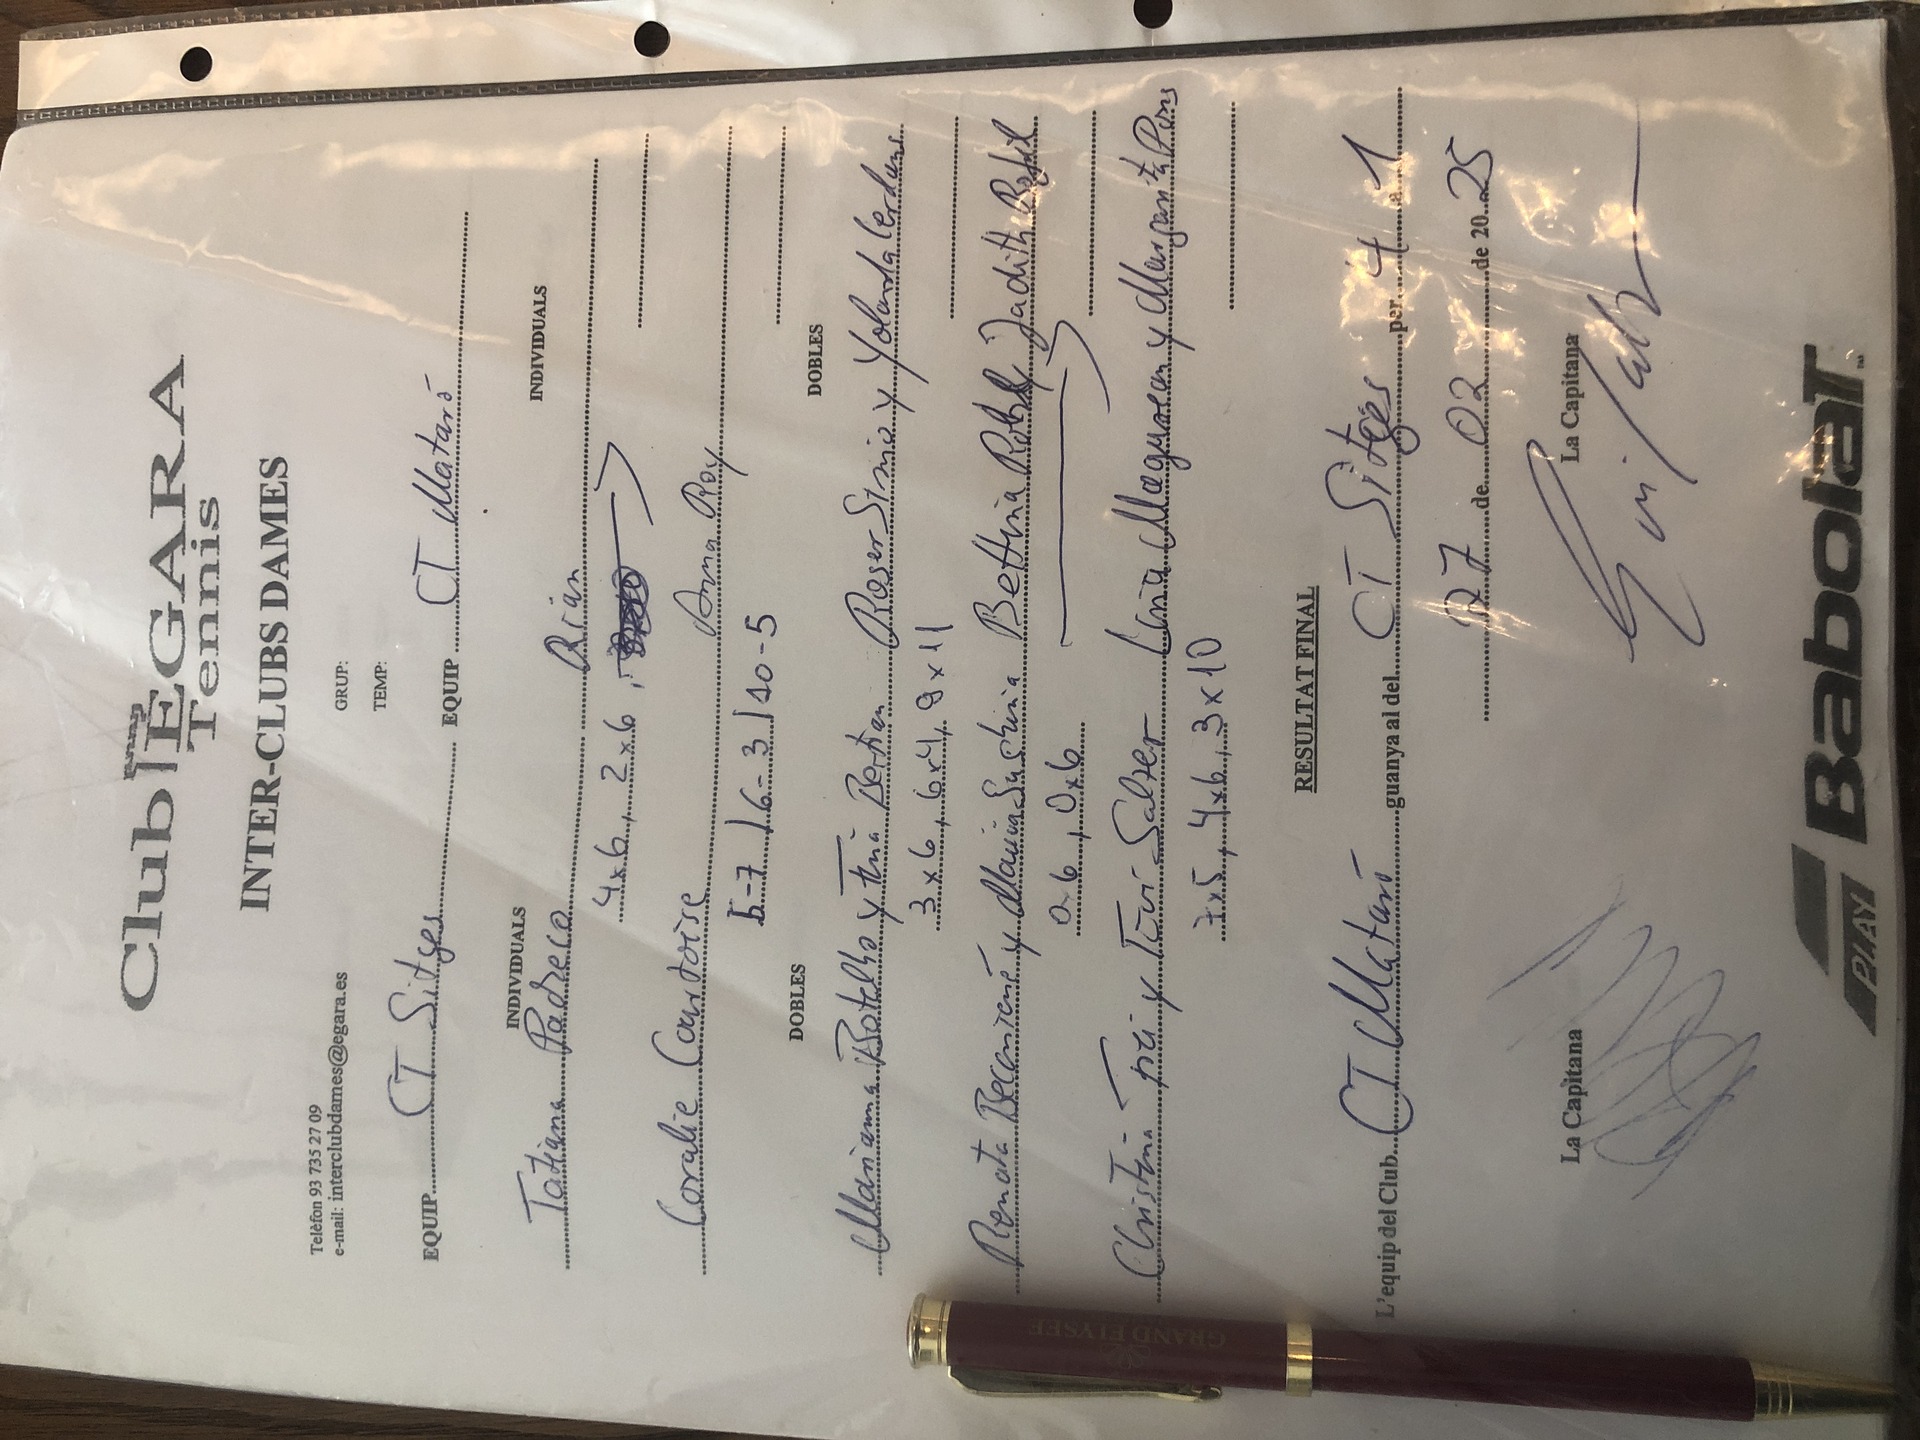 Club EGARA
Tennis
INTER-CLUBS DAMES
Telèfon 93 735 27 09
e-mail: interclubdames@egara.es
GRUP:
TEMP:
EQUIP CT Sitges EQUIP CT Mataró
INDIVIDUALS INDIVIDUALS
Tatiana Padreco Rián
4x6, 2x6,
Coralie Courtoise Anna Roy
5-7 / 6-3 / 10-5
DOBLES DOBLES
Marianna Botelho y Tina Bertran Roser Simio y Yolanda Cerdans
3x6, 6x4, 9x11
Renata y Maria Suchina Bettina Judith
0-6, 0x6
Christina y Tivi Salzer Maguregui y Margarita Pons
7x5, 4x6, 3x10
RESULTAT FINAL
L'equip del Club CT Mataró guanya al del CT Sitges per 4 a 1
27 de 02 de 2025
La Capitana La Capitana
PLAY Babolat
GRAND ELYSEE